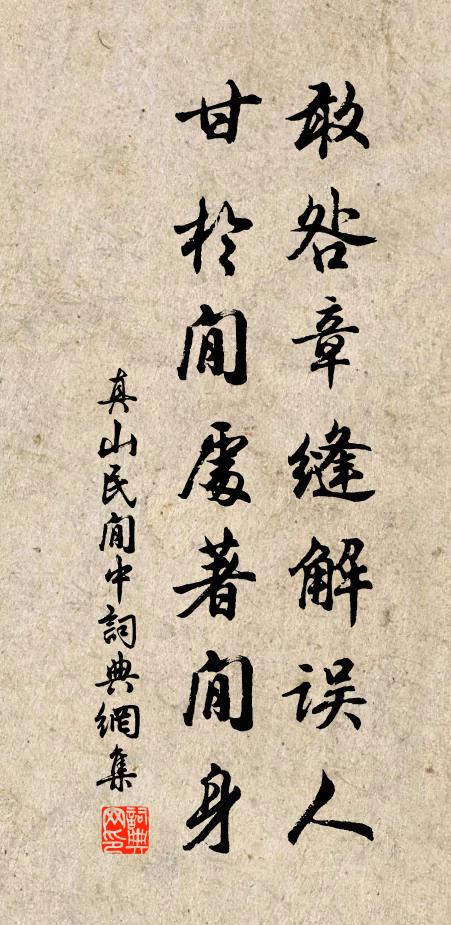 敢咎章縫解误人
甘於閒處著閒身
真山民閒中詞典網集
詞典網印